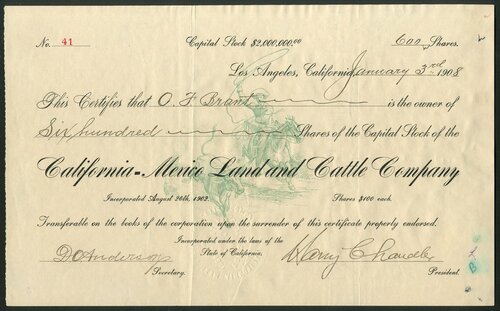 No. 41 Capital Stock $2,000,000.00 600 Shares.
Los Angeles, California, January 3rd 1908
This Certifies that O. F. Brant is the owner of
Six hundred Shares of the Capital Stock of the
California-Mexico Land and Cattle Company
Incorporated August 26th, 1902. Shares $100 each.
Transferable on the books of the corporation upon the surrender of this certificate properly endorsed.
Incorporated under the laws of the
State of California.
D O Anderson Harry Chandler
Secretary. President.